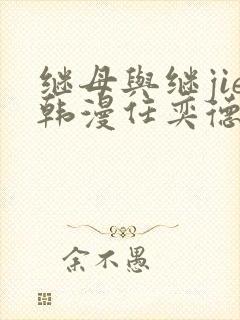 继母與继jie
韩漫任奕德
余不愚